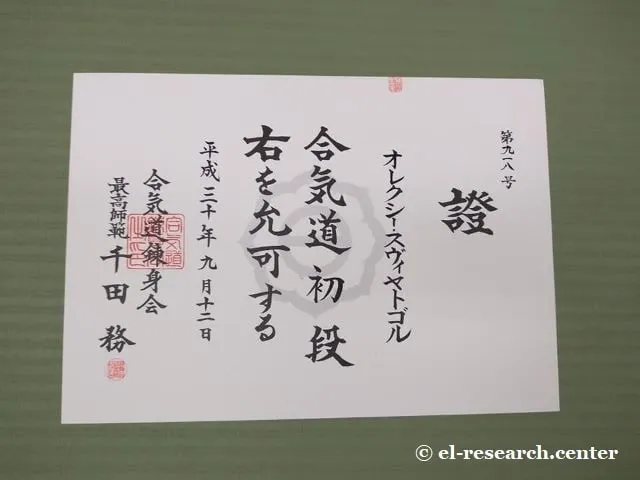 第九一八号
證
オレクシー・スヴィヤトゴル
合気道初段
右を允可する
平成三十年九月十二日
合気道錬身会
最高師範 千田務
© el-research.center